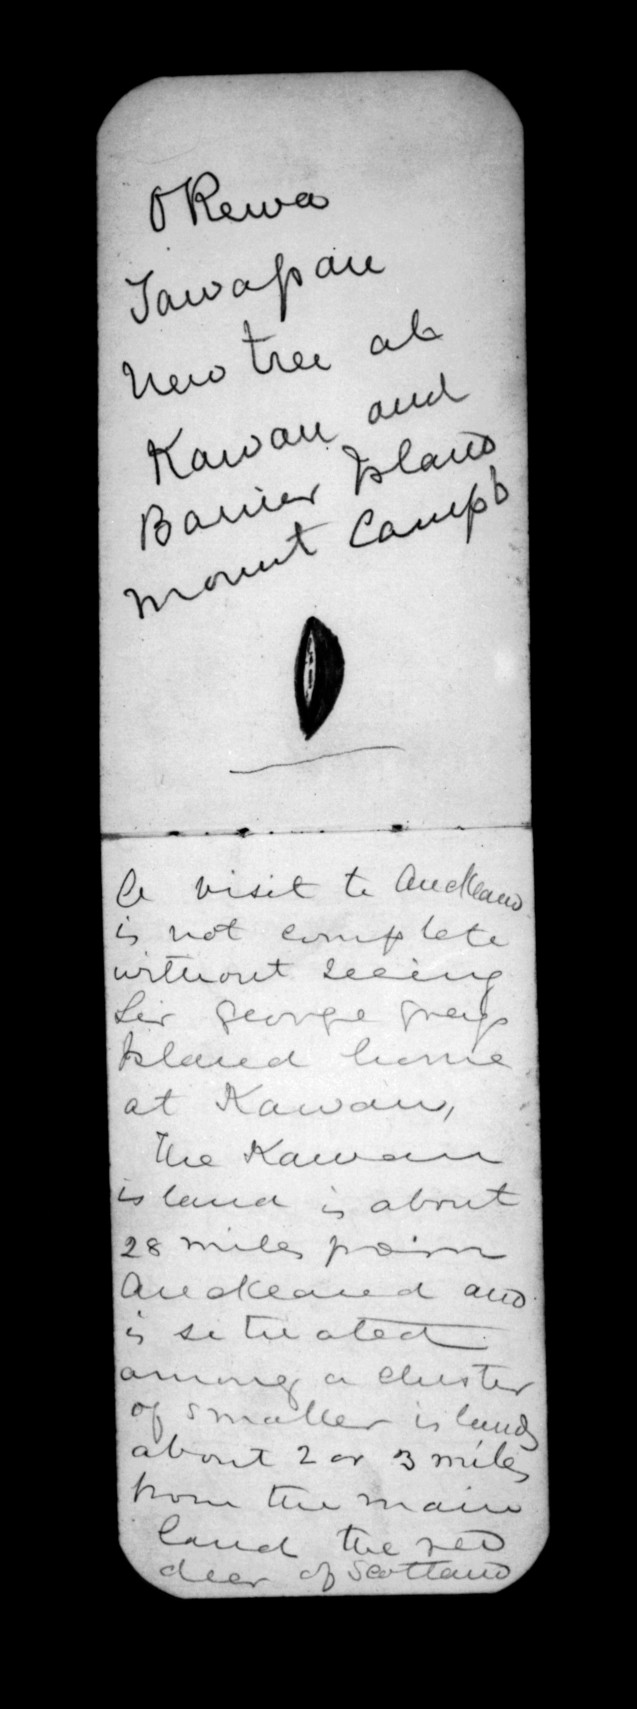 ORewa
Tawapau
New tree at
Kawau and
Barrier Island
Mount Campb
A visit to Auckland
is not complete
without seeing
Sir George Greys
Island home
at Kawau,
The Kawau
island is about
28 miles from
Auckland and
is situated
among a cluster
of smaller islands
about 2 or 3 miles
from the main
land the red
deer of Scotland